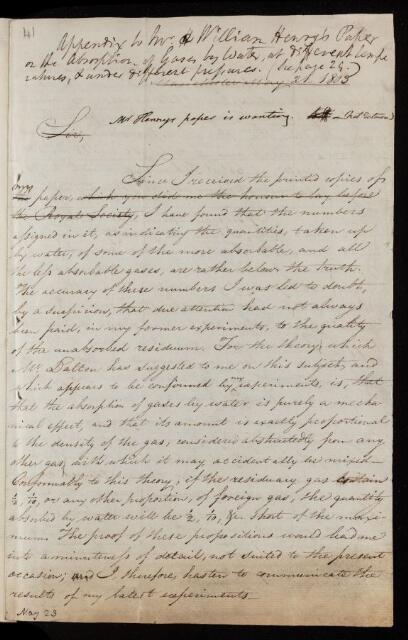 141
Appendix to Mr. William Henry's Paper
on the Absorption of Gases by Water, at different tempe
ratures, & under different pressures. (See page 29.)
May 2. 1803
Mr Henrys paper is wanting. — not returned
Sir,
Since I received the printed copies of
my paper, which you did me the honour to lay before
the Royal Society, I have found that the numbers
assigned in it, as indicating the quantities, taken up
by water, of some of the more absorbable, and all
the less absorbable gases, are rather below the truth.
The accuracy of these numbers I was led to doubt,
by a suspicion, that due attention had not always
been paid, in my former experiments, to the quality
of the unabsorbed residuum. For the theory which
Mr. Dalton has suggested to me on this subject, and
which appears to be confirmed by my experiments, is, that
that the absorption of gases by water is purely a mecha
nical effect, and that its amount is exactly proportional
to the density of the gas, considered abstractedly from any
other gas, with which it may accidentally be mixed.
Conformably to this theory, if the residuary gas contain
½, 1/10, or any other proportion, of foreign gas, the quantity
absorbed by water will be ½, 1/10, &c. short of the maxi-
mum. The proof of these propositions would lead me
into a minuteness of detail, not suited to the present
occasion; and I therefore hasten to communicate the
results of my latest experiments
May 23